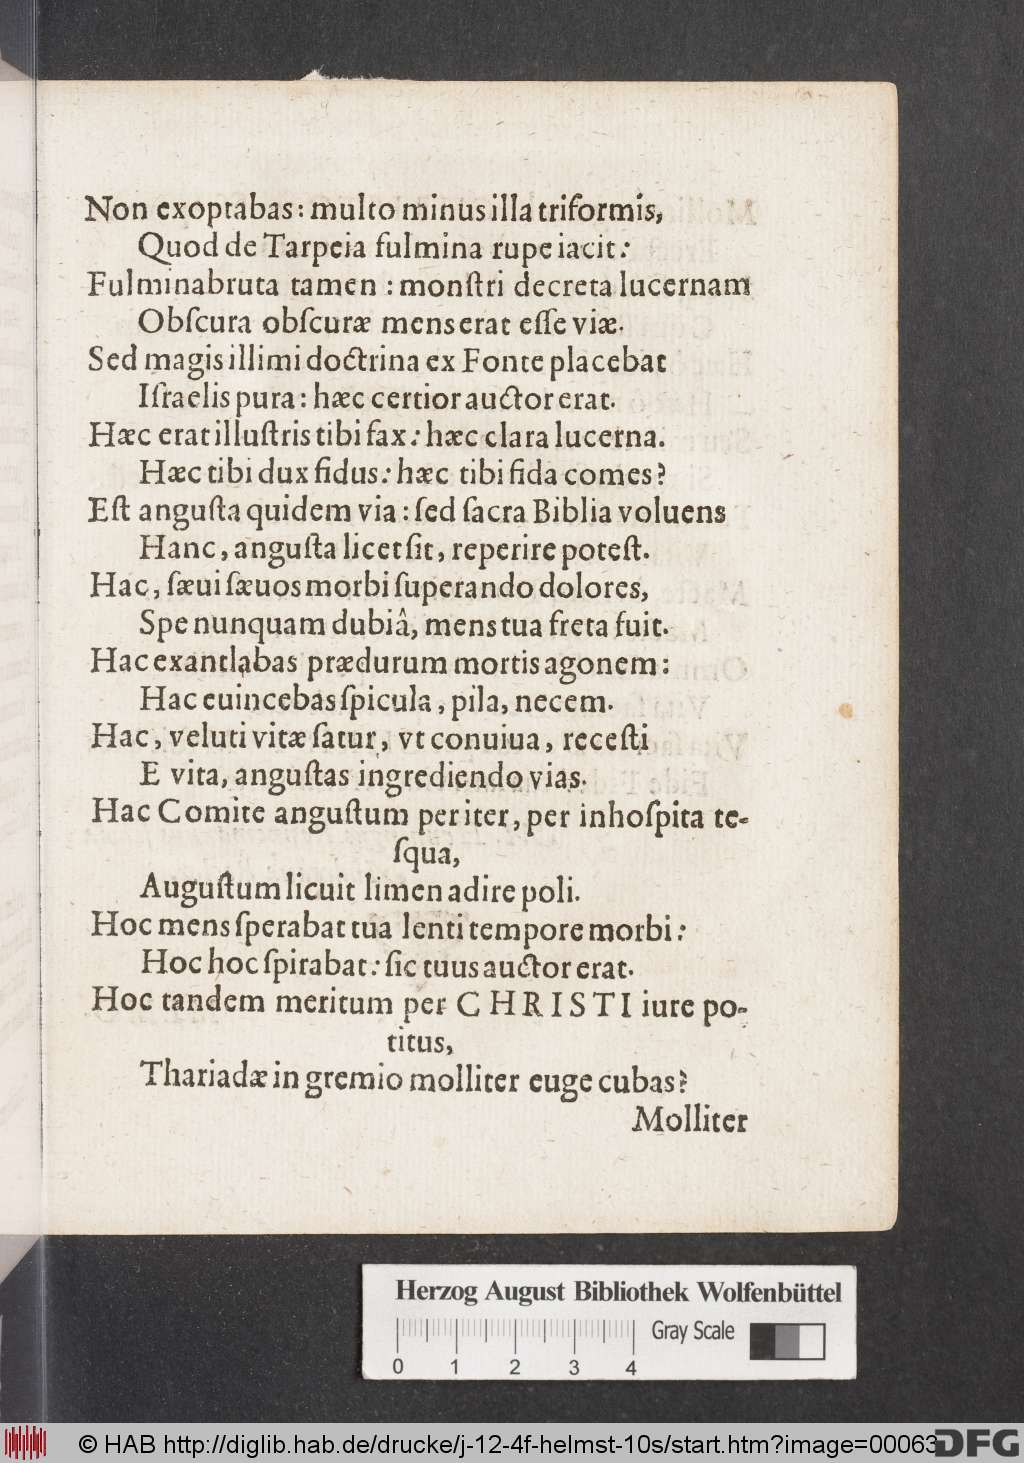 Non exoptabas: multo minus illa triformis,
Quod de Tarpeia fulmina rupe iacit:
Fulmina bruta tamen: monſtri decreta lucernam
Obſcura obſcuræ mens erat eſſe viæ.
Sed magis illimi doctrina ex Fonte placebat
Iſraelis pura: hæc certior auctor erat.
Hæc erat illuſtris tibi fax: hæc clara lucerna.
Hæc tibi dux fidus: hæc tibi fida comes?
Eſt anguſta quidem via: ſed ſacra Biblia voluens
Hanc, anguſta licet ſit, reperire poteſt.
Hac, ſæui ſæuos morbi ſuperando dolores,
Spe nunquam dubiâ, mens tua freta fuit.
Hac exantlabas prædurum mortis agonem:
Hac euincebas ſpicula, pila, necem.
Hac, veluti vitæ ſatur, vt conuiua, receſti
E vita, anguſtas ingrediendo vias.
Hac Comite anguſtum per iter, per inhoſpita te-
ſqua,
Auguſtum licuit limen adire poli.
Hoc mens ſperabat tua lenti tempore morbi:
Hoc hoc ſpirabat: ſic tuus auctor erat.
Hoc tandem meritum per CHRISTI iure po-
titus,
Thariadæ in gremio molliter euge cubas?
Molliter
Herzog August Bibliothek Wolfenbüttel
Gray Scale
0 1 2 3 4
© HAB http://diglib.hab.de/drucke/j-12-4f-helmst-10s/start.htm?image=00063
DFG